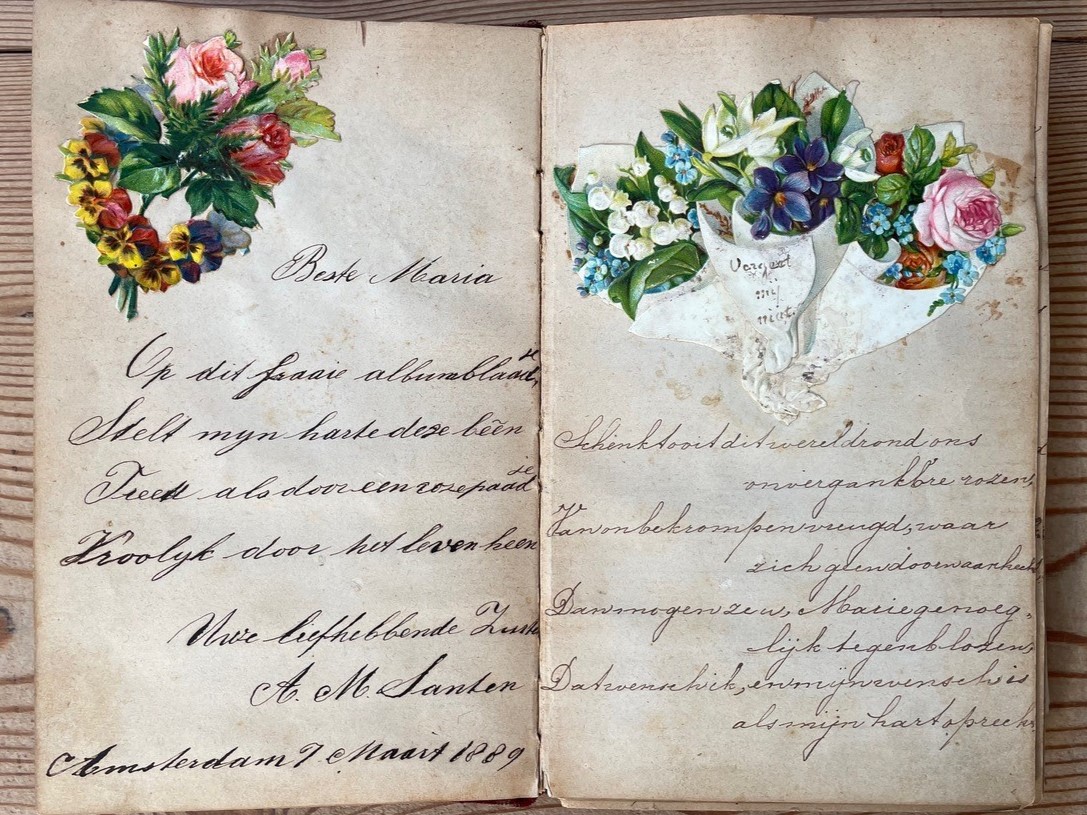 Beste Maria
Op dit fraaie albumblaadje,
Stelt myn harte deze bêên
Treed als door een rosepaadje
Vroolyk door het leven heen
Uwe liefhebbende Zuster
A. M. Santen
Amsterdam 7 Maart 1889
Vergeet
mij
niet.
Schenkt ooit dit wereldrond ons
onvergankb're rozen,
Van onbekrompen vreugd, waar
zich geen doorn aan hecht,
Dan mogen ze u, Marie genoeg-
lijk tegenblozen,
Dat wensch ik, en mijn wensch is
als mijn hart oprecht.